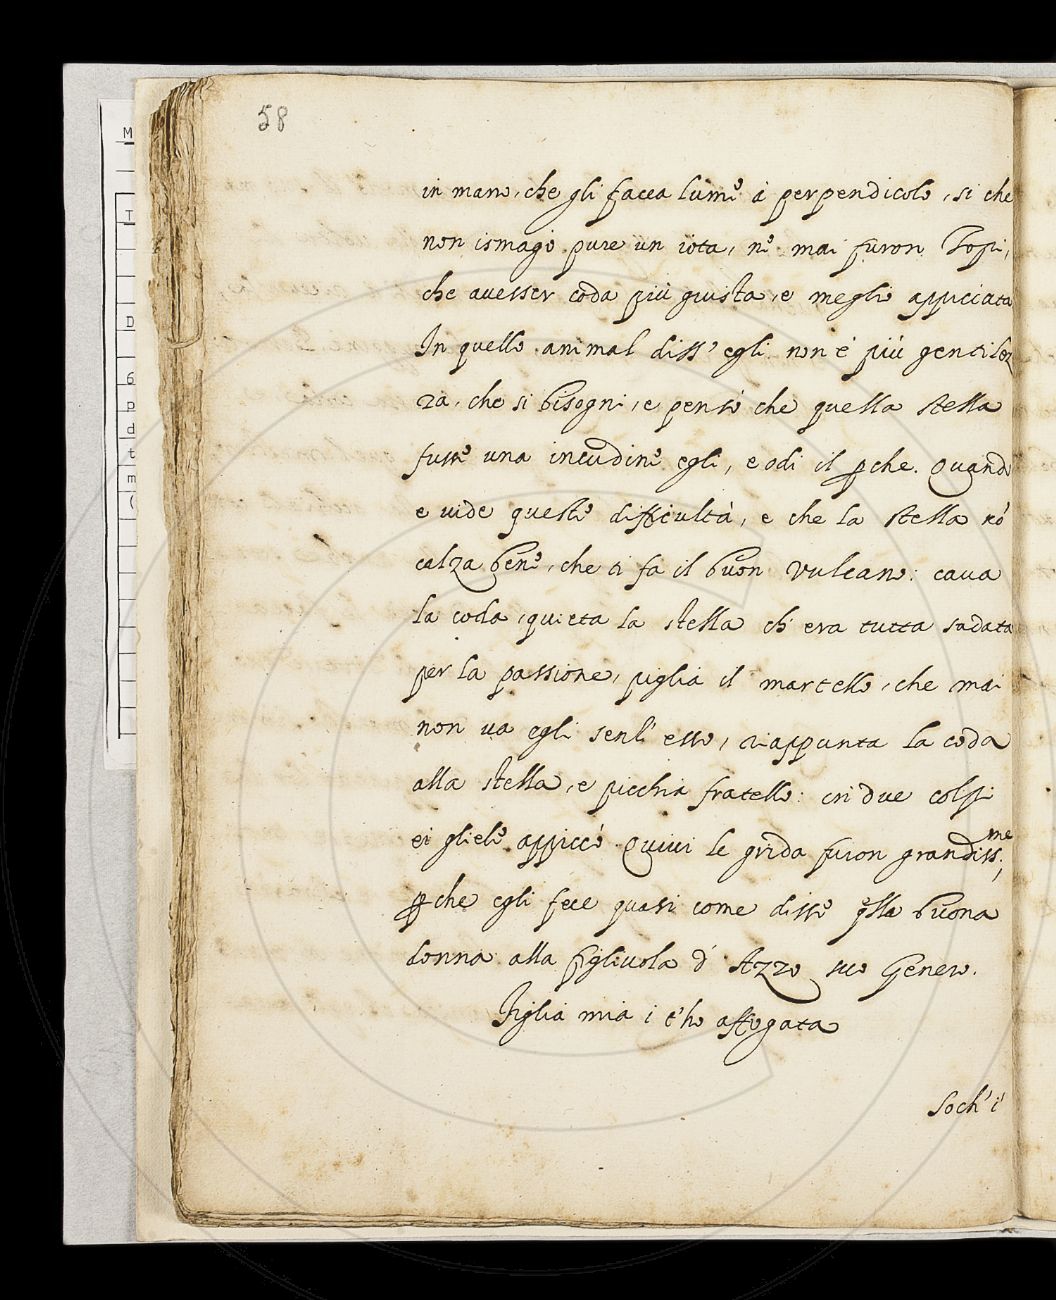 58
in mano, che gli facea lume à perpendicolo, si che
non ismagò pure un iota, nè mai furon Topi,
che auesser coda più giusta, e meglio appiccata
In quello animal diss' egli non è più gentilez
za, che si bisogni, e pensò che quella stella
fusse una incudine egli, e odi il ꝑche. Quando
e uide queste difficultà, e che la stella nó
calza bene, che ti fa il buon Vulcano: caua
la coda, quieta la stella ch' era tutta sudata
per la passione, piglia il martello, che mai
non ua egli senz' esso, riappunta la coda
alla stella, e picchia fratello: in due colpi
ei gliele appiccò. Quiui le grida furon grandiss.me,
ꝑche egli fece quasi come disse qlla buona
donna alla figliuola d' Azzo suo Genero.
Figlia mia i t'ho affogata
So ch' i'
M
T
D
6
p
d
t
m
(